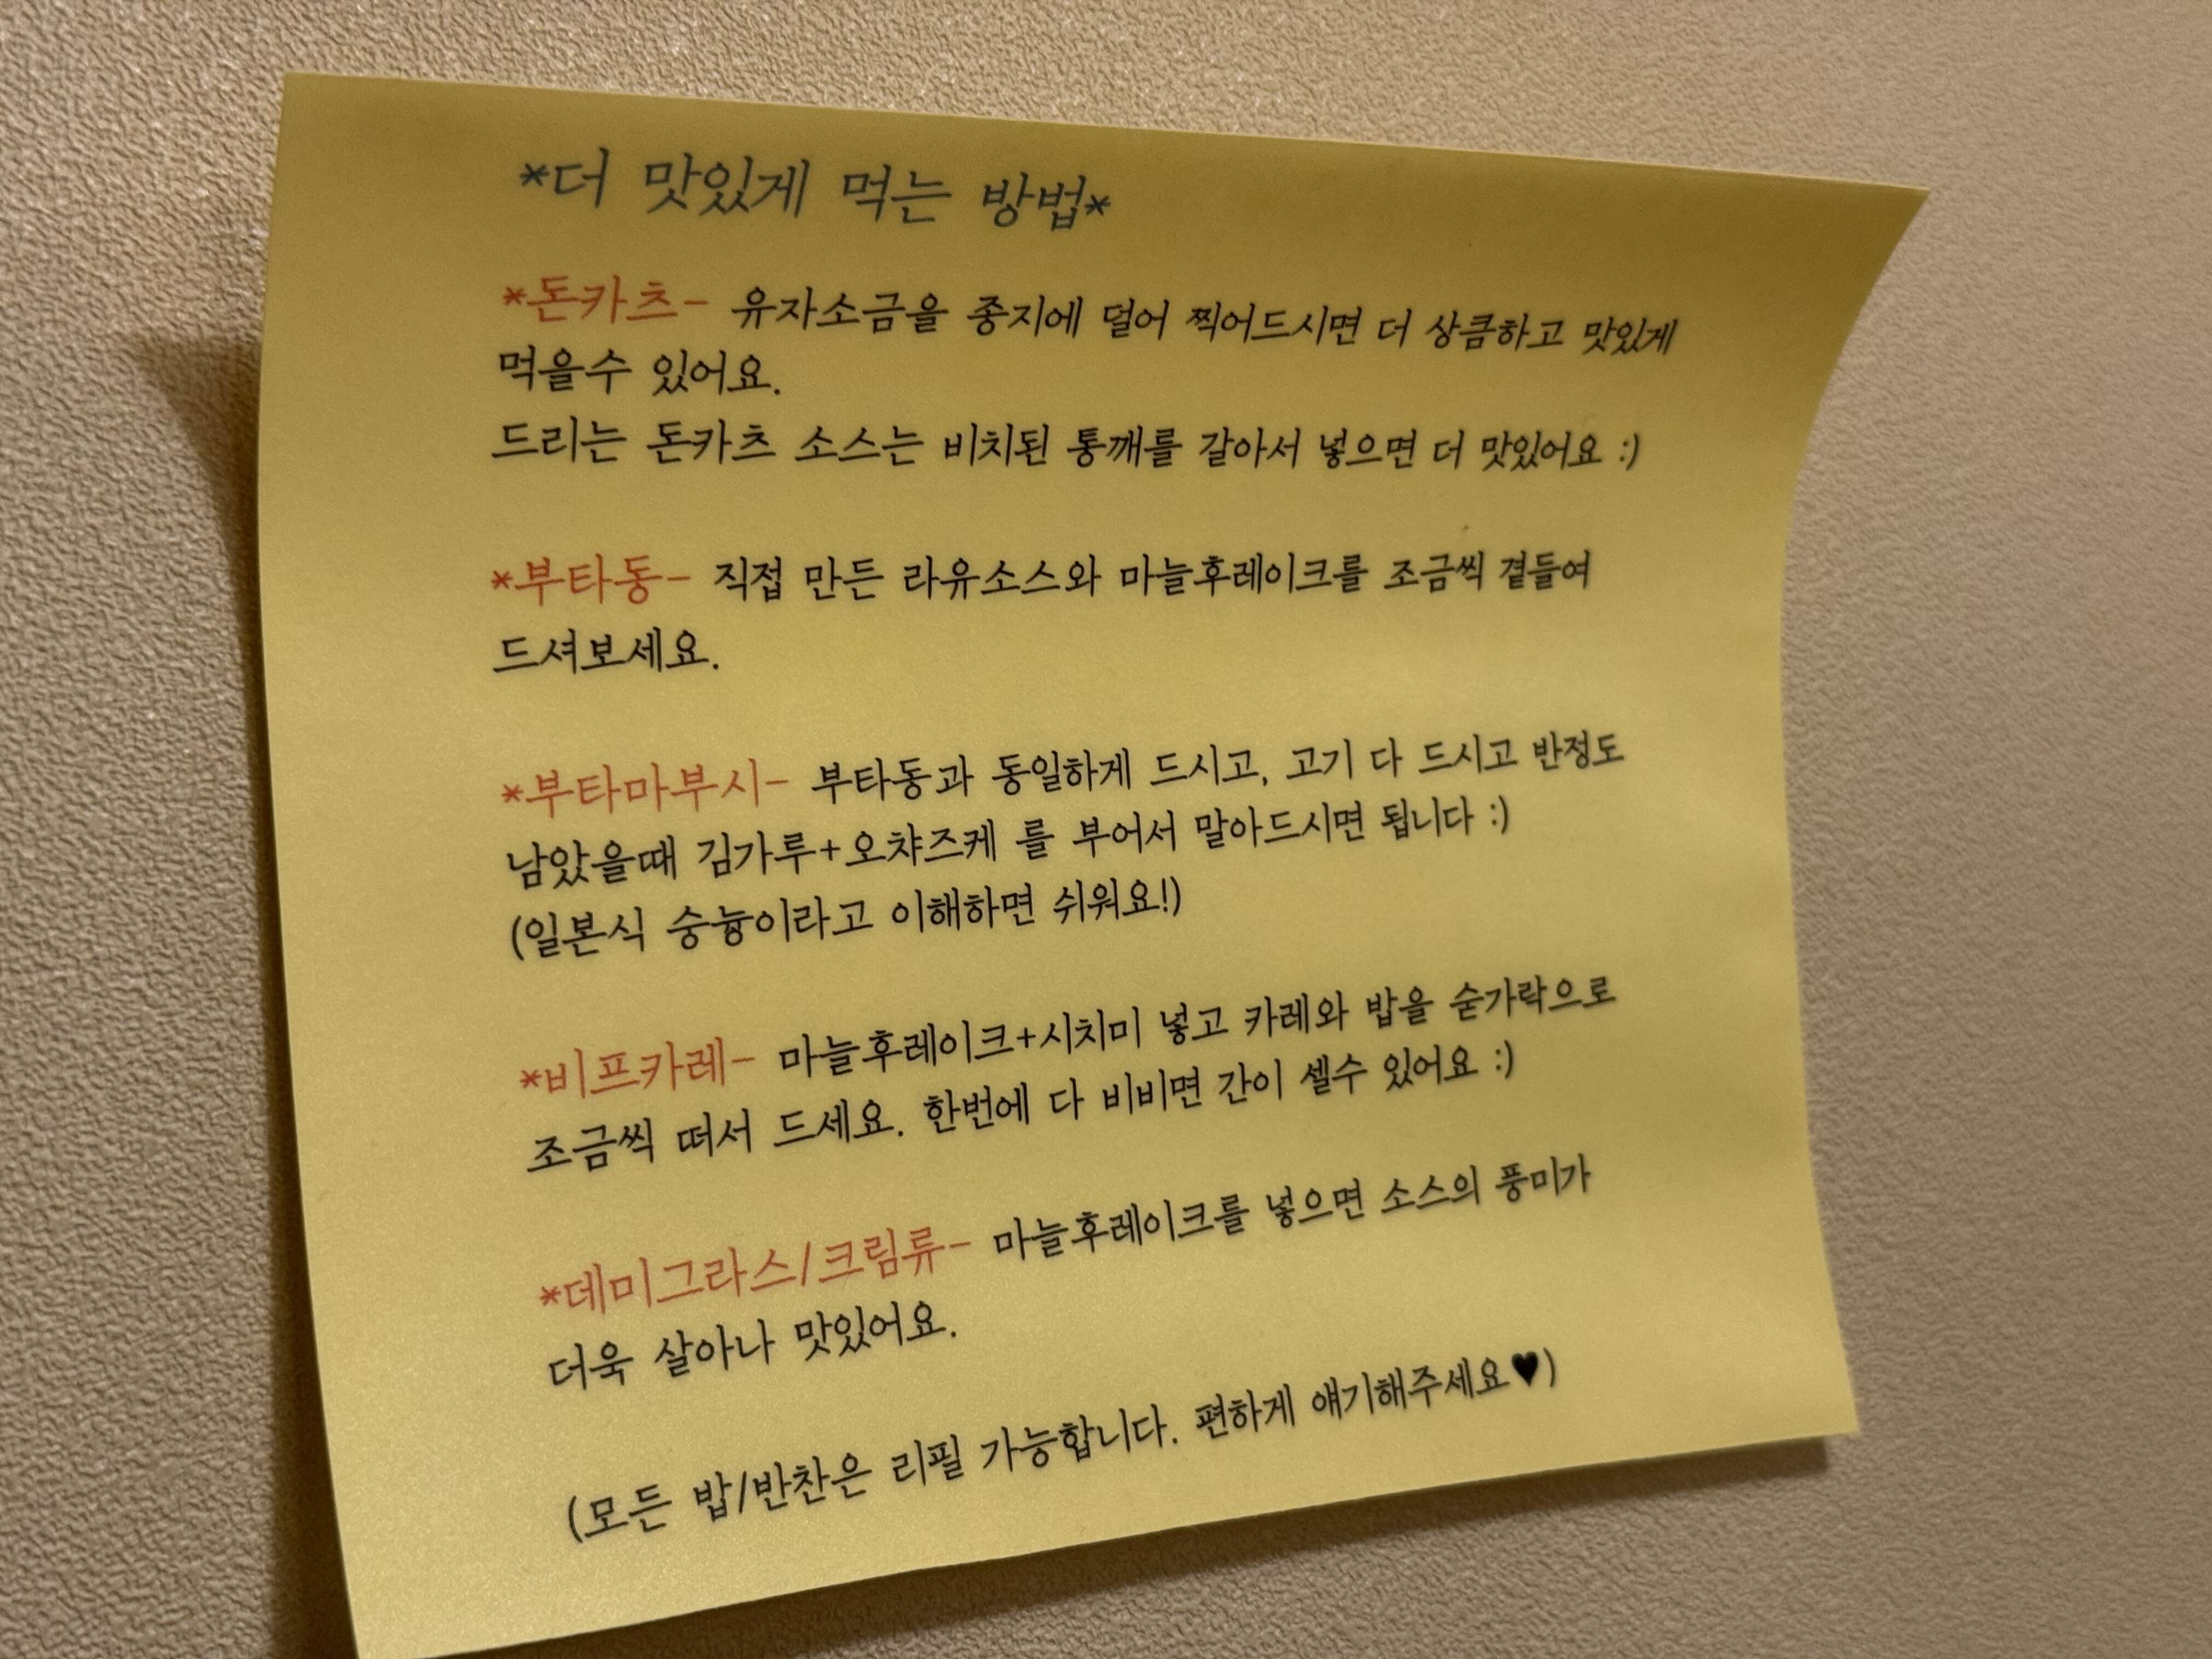 *더 맛있게 먹는 방법*
*돈카츠- 유자소금을 종지에 덜어 찍어드시면 더 상큼하고 맛있게
먹을수 있어요.
드리는 돈카츠 소스는 비치된 통깨를 갈아서 넣으면 더 맛있어요 :)
*부타동- 직접 만든 라유소스와 마늘후레이크를 조금씩 곁들여
드셔보세요.
*부타마부시- 부타동과 동일하게 드시고, 고기 다 드시고 반정도
남았을때 김가루+오챠즈케 를 부어서 말아드시면 됩니다 :)
(일본식 숭늉이라고 이해하면 쉬워요!)
*비프카레- 마늘후레이크+시치미 넣고 카레와 밥을 숟가락으로
조금씩 떠서 드세요. 한번에 다 비비면 간이 셀수 있어요 :)
*데미그라스/크림류- 마늘후레이크를 넣으면 소스의 풍미가
더욱 살아나 맛있어요.
(모든 밥/반찬은 리필 가능합니다. 편하게 얘기해주세요♥)